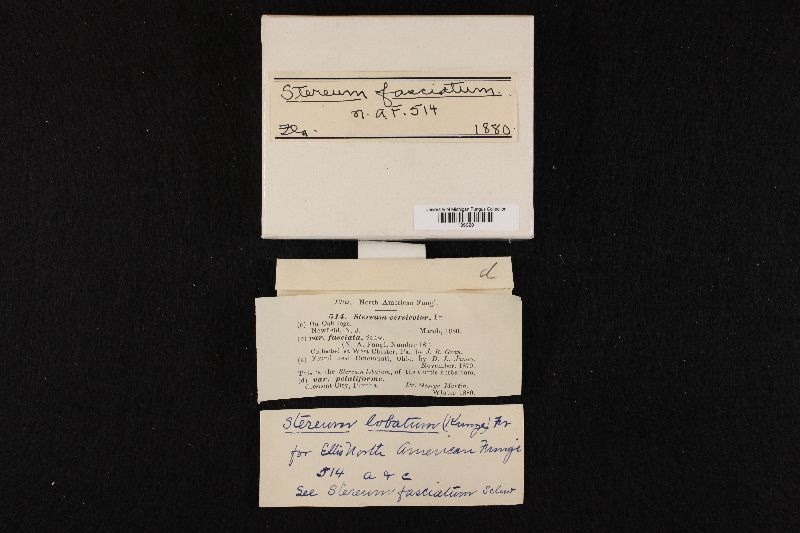 Stereum fasciatum.
n. a F. 514
Fla. 1880.
University of Michigan Fungus Collection
d
Ellis, North American Fungi.
514. Stereum versicolor, Fr.
(a) On Oak logs,
Newfield, N. J. March, 1880.
(b) var. fasciata, Schw.
(N. A. Fungi, Number 18.)
Collected at West Chester, Pa., by J. R. Gray.
(c) Found near Cincinnati, Ohio, by D. L. James.
November, 1879.
This is the Stereum lobatum, of the Curtis herbarium.
(d) var. petaliforme,
Crescent City, Florida Dr. George Martin.
Winter 1880.
Stereum lobatum (Kunze) Fr
for Ellis North American Fungi
514 a & c
See Stereum fasciatum Schw